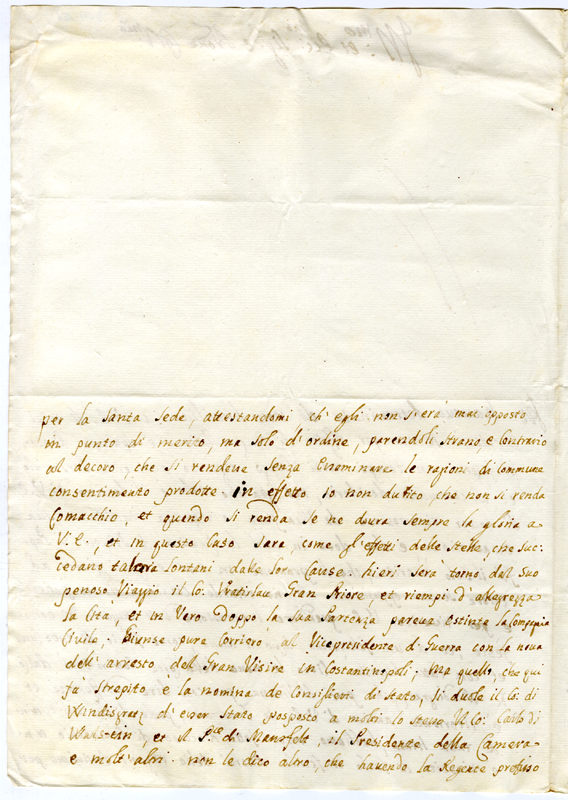 per la Santa Sede, attestandomi ch'egli non s'era mai opposto
in punto di merito, ma solo d'ordine, parendoli strano, e Contrario
al decoro, che si rendeue senza Eseminare le ragioni di Commune
consentimento prodotte in effetto io non dubito, che non si renda
Comacchio, et quando si renda se ne doura sempre la gloria a
V. E., et in questo Caso sara, come gl'effetti delle Stelle, che suc:
cedano talora lontani dalle loro Cause. hieri sera torno dal suo
penoso Viaggio il Co: Vratislau Gran Priore, et riempi d'allegrezza
la Città, et in Vero doppo la sua Partenza pareua estinta la Compagnia
Ciuile; Giunse pure Corriero al Vicepresidente di Guerra con la noua
dell'arresto del Gran Visire in Costantinopoli; Ma quello, che qui
fa strepito è la nomina de Consiglieri di Stato, si duole il Co: di
Windisgratz d'esser stato posposto a molti lo stesso Il Co: Carlo di
Walstein, et il Pñpe di Mansfelt, il Presidente della Camera
e molt'altri. non le dico altro, che hauendo la Regente